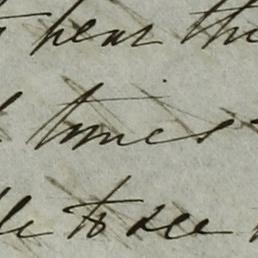 hear the
times
to see